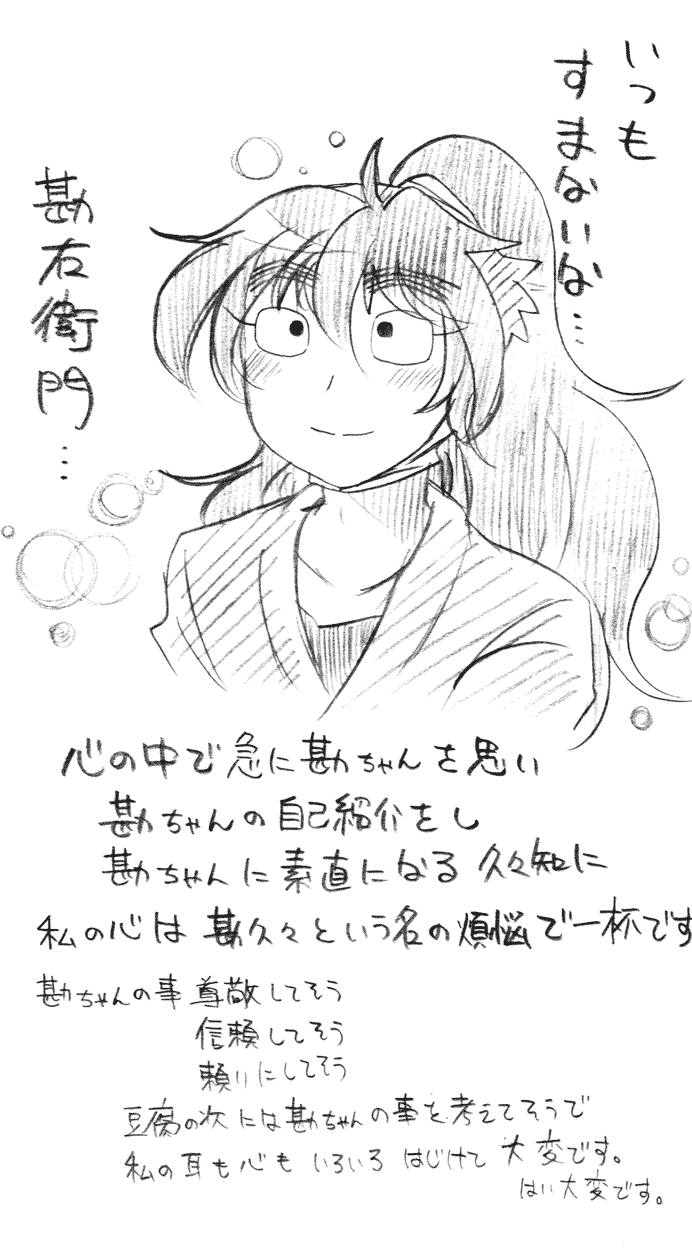 いつも
すまないな…
勘右衛門…
心の中で急に勘ちゃんを思い
勘ちゃんの自己紹介をし
勘ちゃんに素直になる久々知に
私の心は勘久々という名の煩悩で一杯です
勘ちゃんの事尊敬してそう
信頼してそう
頼りにしてそう
豆腐の次には勘ちゃんの事を考えてそうで
私の耳も心もいろいろはじけて大変です。
はい大変です。